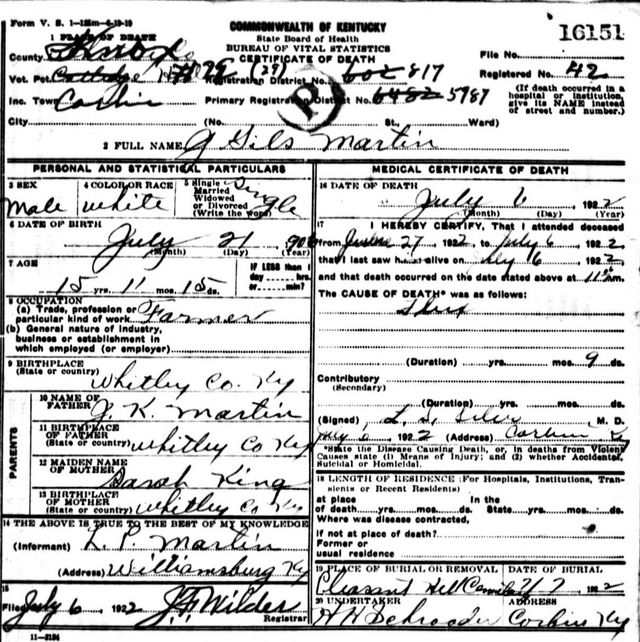 Form V. S. 1-125m-6-19-19
COMMONWEALTH OF KENTUCKY
State Board of Health
BUREAU OF VITAL STATISTICS
CERTIFICATE OF DEATH
16151
1 PLACE OF DEATH
County Knox
File No.
Vot. Pct. 29 (29) Registration District No. 602 817
Registered No. 42
Inc. Town Corbin Primary Registration District No. 6482 5987
(If death occurred in a hospital or institution, give its NAME instead of street and number.)
City (No. St., Ward)
R
2 FULL NAME J Gils Martin
PERSONAL AND STATISTICAL PARTICULARS
3 SEX male
4 COLOR OR RACE white
5 Single Married Widowed or Divorced (Write the word) Single
6 DATE OF BIRTH July 21 1906
(Month) (Day) (Year)
7 AGE 15 yrs. 11 mos. 15 ds.
IF LESS than 1 day hrs. or min?
8 OCCUPATION
(a) Trade, profession or particular kind of work Farmer
(b) General nature of industry, business or establishment in which employed (or employer)
9 BIRTHPLACE (State or country) Whitley Co. Ky
PARENTS
10 NAME OF FATHER J. K. Martin
11 BIRTHPLACE OF FATHER (State or country) Whitley Co Ky
12 MAIDEN NAME OF MOTHER Sarah King
13 BIRTHPLACE OF MOTHER (State or country) Whitley Co Ky
14 THE ABOVE IS TRUE TO THE BEST OF MY KNOWLEDGE
(Informant) L. P. Martin
(Address) Williamsburg Ky
15
Filed July 6 1922 J F Wilder
Registrar
11-3184
MEDICAL CERTIFICATE OF DEATH
16 DATE OF DEATH July 6 1922
(Month) (Day) (Year)
17 I HEREBY CERTIFY, That I attended deceased
from June 27 1922 to July 6 1922
that I last saw him alive on July 6 1922
and that death occurred on the date stated above at 11 m.
The CAUSE OF DEATH* was as follows:
(Duration) yrs. mos. 9 ds.
Contributory
(Secondary)
(Duration) yrs. mos. ds.
(Signed) M. D.
July 6 1922 (Address) Corbin Ky
*State the Disease Causing Death, or, in deaths from Violent Causes state (1) Means of Injury; and (2) whether Accidental, Suicidal or Homicidal.
18 LENGTH OF RESIDENCE (For Hospitals, Institutions, Transients or Recent Residents)
at place of death yrs. mos. ds. In the State yrs. mos. ds.
Where was disease contracted,
if not at place of death?
Former or usual residence
19 PLACE OF BURIAL OR REMOVAL Pleasant Hill
DATE OF BURIAL 7/7 1922
20 UNDERTAKER H H Schrooder Corbin Ky